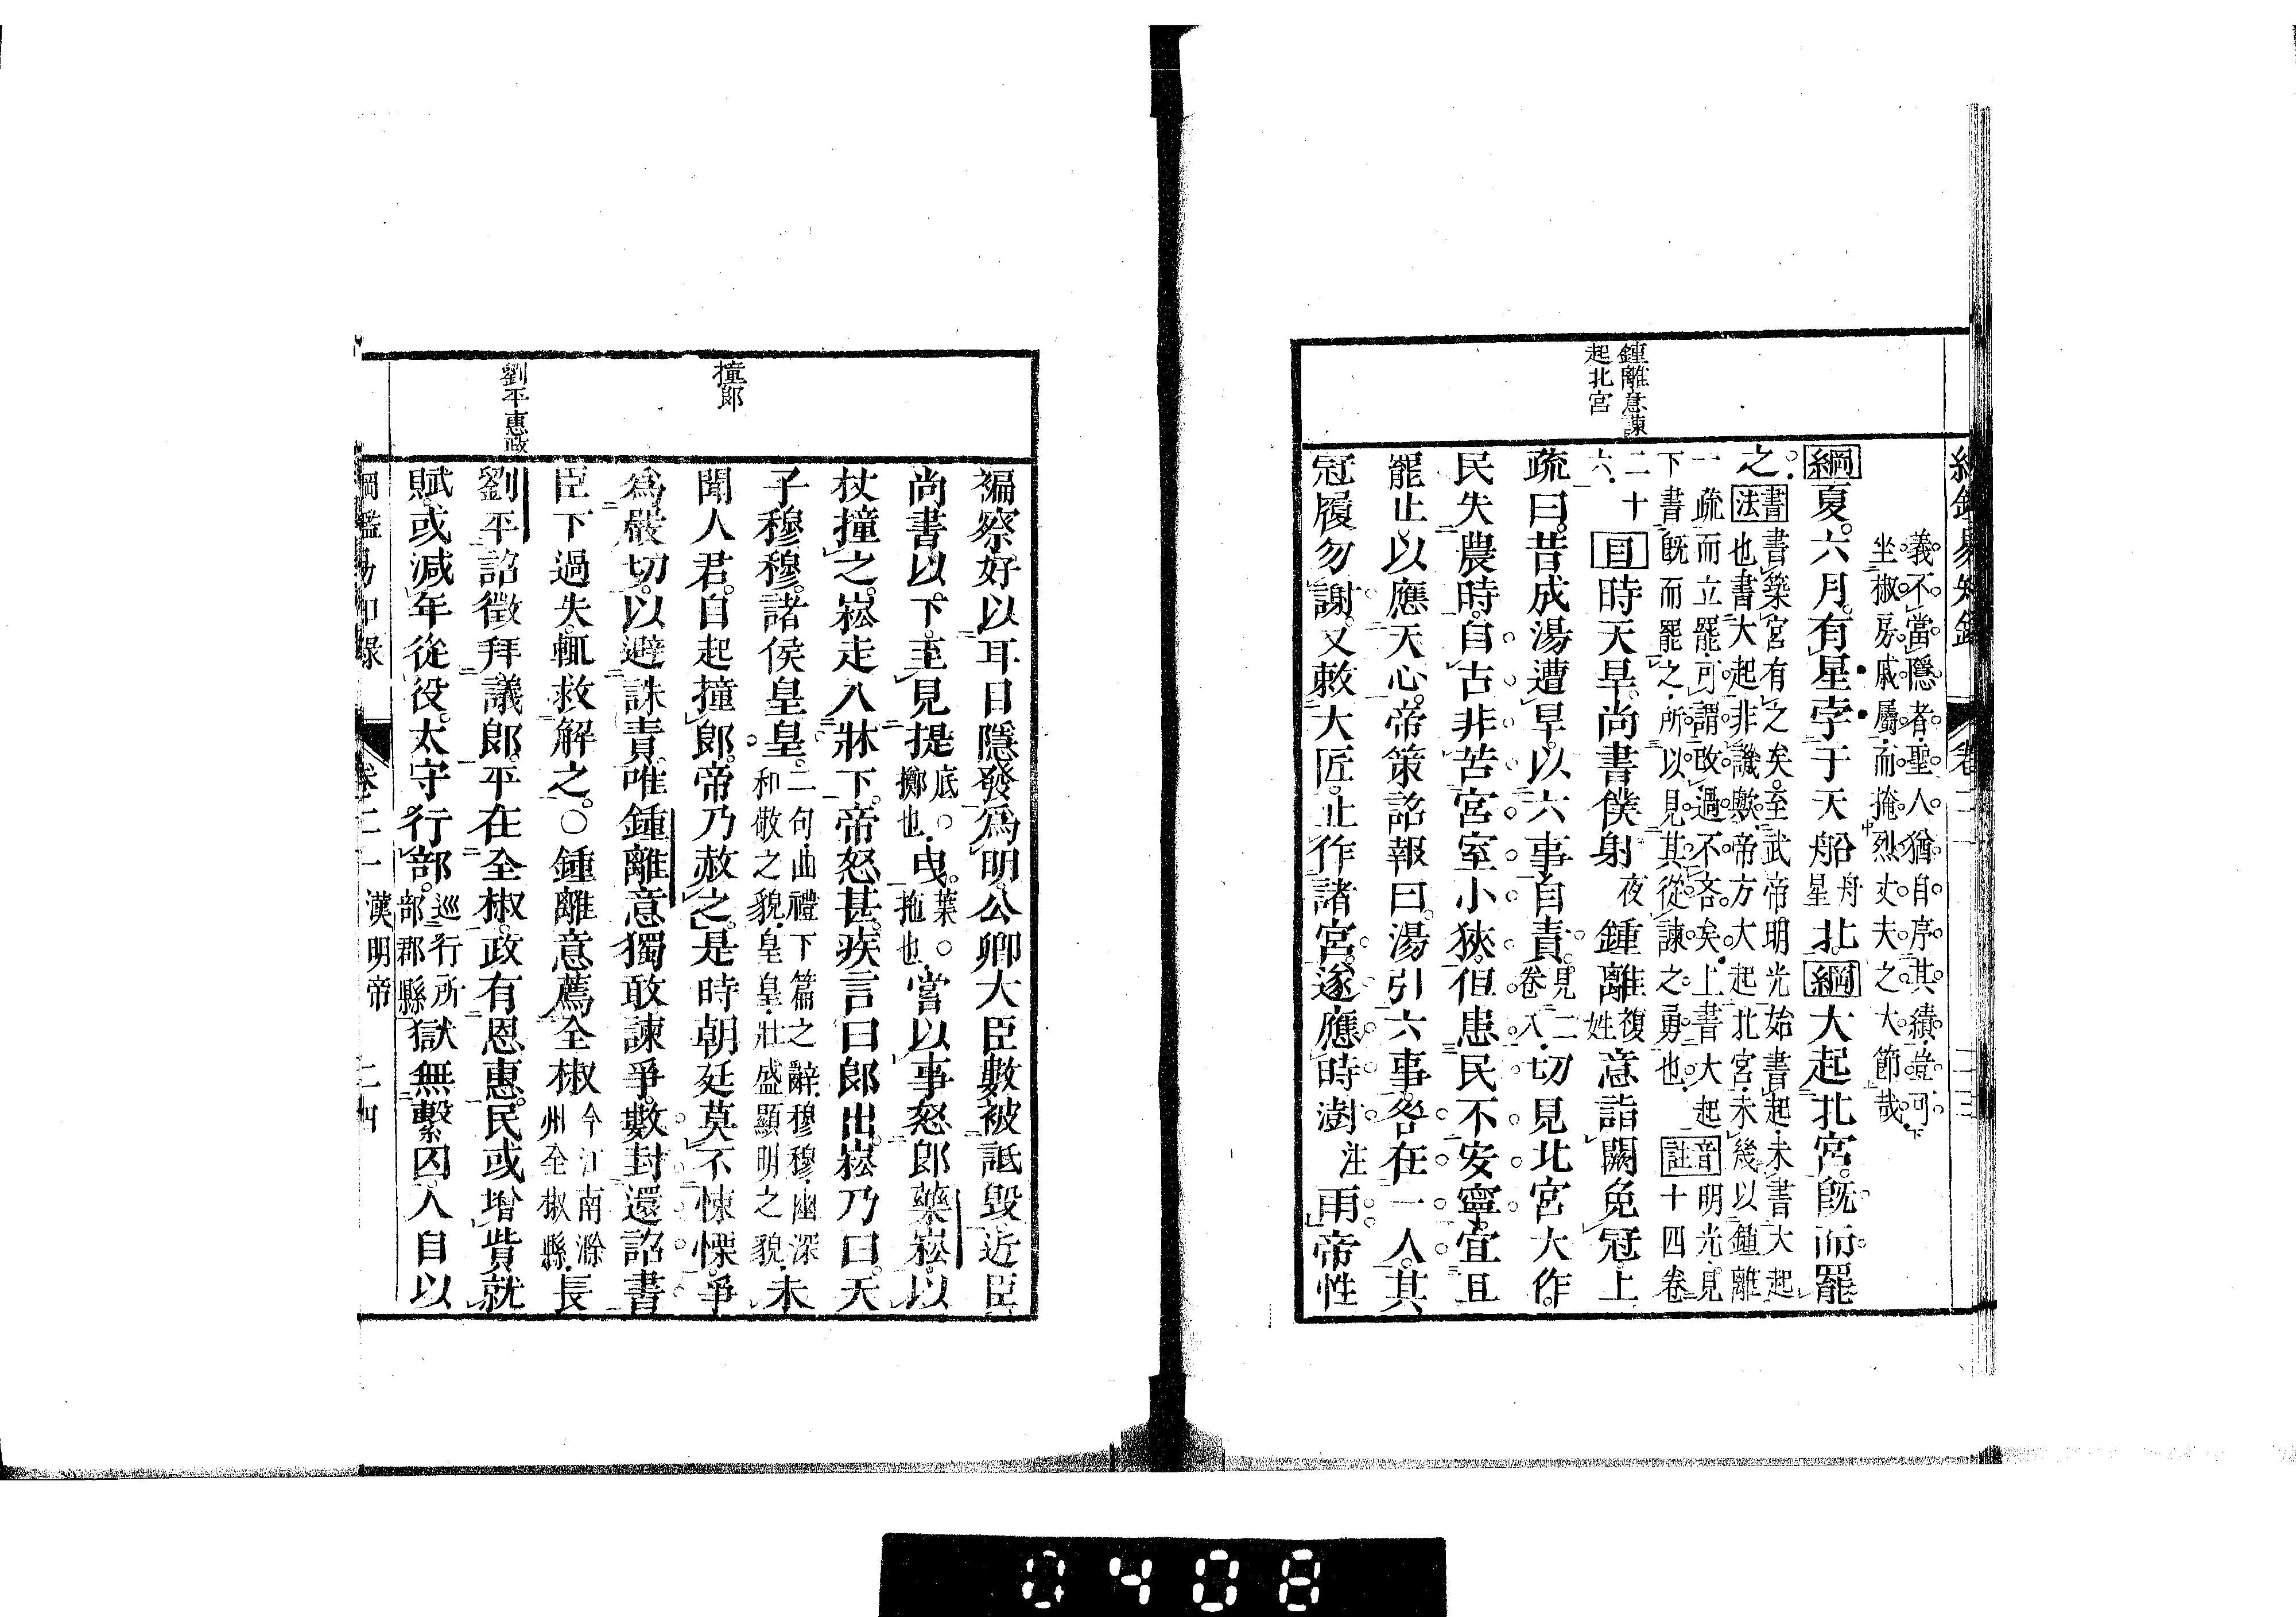 鍾離意諫
起北宮
義不當隱者聖人猶自序其績豈可
坐椒房戚屬而掩烈丈夫之大節哉
綱夏六月有星孛于天船舟星北綱大起北宮既而罷
之書法書築宮有之矣至武帝明光始書起未書大起
也書大起非譏歟帝方大起北宮未幾以鍾離
一疏而立罷可謂改過不吝矣上書大起
下書既而罷之所以見其從諫之勇也音註明光見十四卷
二十六目時天旱尚書僕射夜鍾離複姓意詣闕免冠上
疏曰昔成湯遭旱以六事自責見二卷八切見北宮大作
民失農時自古非苦宮室小狹但患民不安寧宜且
罷止以應天心帝策詔報曰湯引六事咎在一人其
冠履勿謝又敕大匠止作諸宮遂應時澍注雨帝性
撞郎
劉平惠政
褊察好以耳目隱發爲明公卿大臣數被詆毀近臣
尚書以下至見提底○擲也曳葉○拖也嘗以事怒郎藥崧以
杖撞之崧走入牀下帝怒甚疾言曰郎出崧乃曰天
子穆穆諸侯皇皇二句曲禮下篇之辭穆穆幽深和敬之貌皇皇壯盛顯明之貌未
聞人君自起撞郎帝乃赦之是時朝廷莫不悚慄爭
爲嚴切以避誅責唯鍾離意獨敢諫爭數封還詔書
臣下過失輒救解之○鍾離意薦全椒今江南滁州全椒縣長
劉平詔徵拜議郎平在全椒政有恩惠民或增貲就
賦或減年從役太守行部巡行所部郡縣獄無繫囚人自以
綱鑑易知錄 卷二一 漢明帝 二四
0408